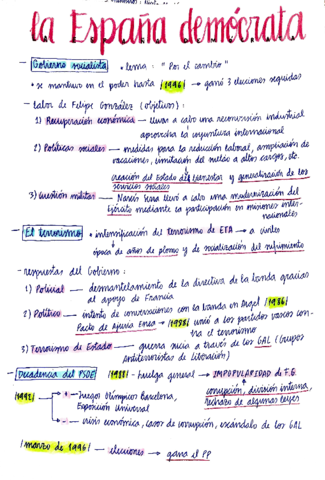 la España demócrata
- Gobierno socialista • lema: "Por el cambio"
• se mantuvo en el poder hasta /1996/ → ganó 3 elecciones seguidas
- labor de Felipe González (objetivos):
1) Recuperación económica → llevar a cabo una reconversión industrial
aprovecha la coyuntura internacional
2) Políticas sociales → medidas para la reducción laboral, ampliación de
vacaciones, limitación del sueldo a altos cargos, etc.
creación del Estado del bienestar y generalización de los
servicios sociales
3) Cuestión militar → Narcís Serra llevó a cabo una modernización del
Ejército mediante la participación en misiones inter-
nacionales
- El terrorismo • intensificación del terrorismo de ETA → a civiles
época de años de plomo y de socialización del sufrimiento
- respuestas del Gobierno:
1) Policial → desmantelamiento de la directiva de la banda gracias
al apoyo de Francia
2) Político → intento de conversaciones con la banda en Argel /1986/
Pacto de Ajuria Enea → /1988/ unió a los partidos vascos con-
tra el terrorismo
3) Terrorismo de Estado → guerra sucia a través de los GAL (Grupos
Antiterroristas de Liberación)
- Decadencia del PSOE /1988/ - huelga general → IMPOPULARIDAD de F.G.
corrupción, división interna,
rechazo de algunas leyes
/1992/ + → Juegos Olímpicos Barcelona,
Exposición Universal
- → crisis económica, casos de corrupción, escándalo de los GAL
/marzo de 1996/ → elecciones → gana el PP